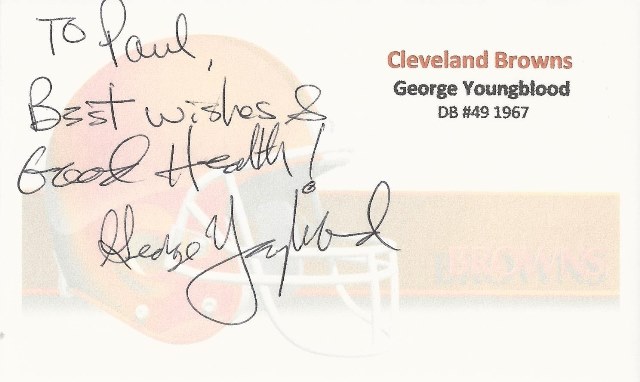 To Paul,
Best wishes &
Good Health!
George Youngblood
Cleveland Browns
George Youngblood
DB #49 1967
BROWNS